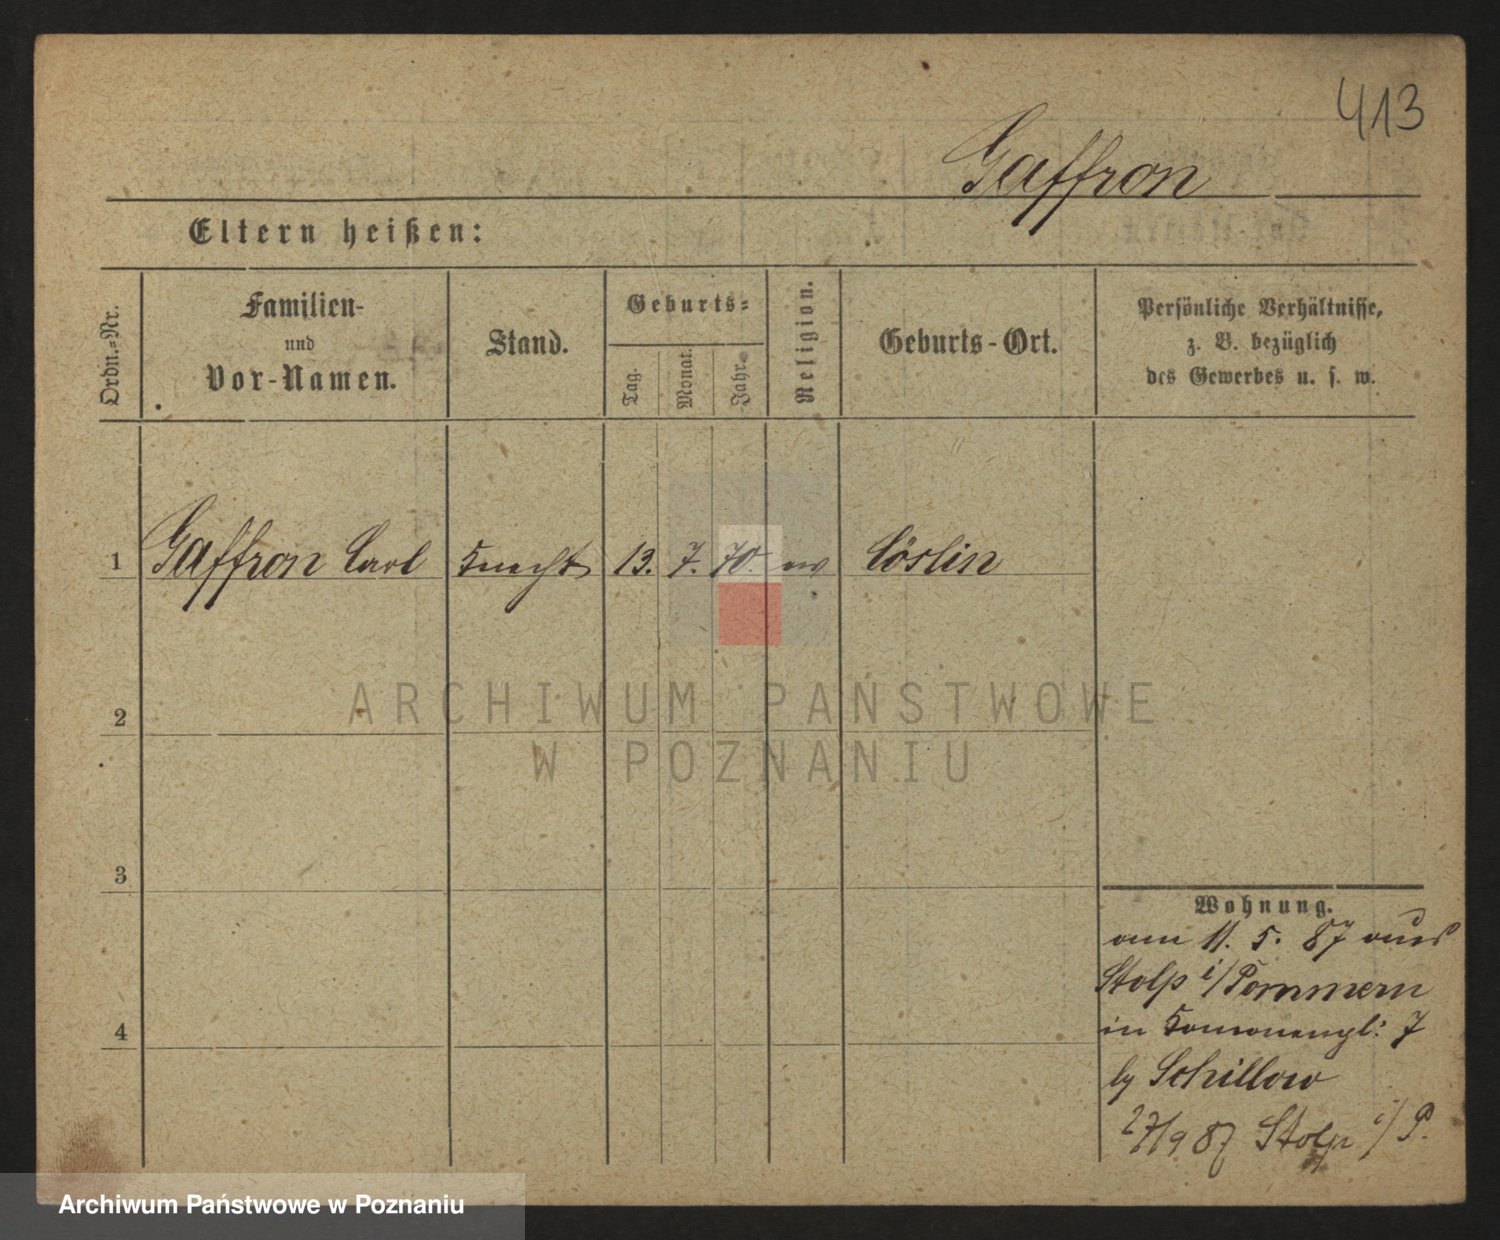 413
Gaffron
Eltern heißen:
Ordn.-Nr.
Familien-
und
Vor-Namen.
Stand.
Geburts-
Tag.
Monat.
Jahr.
Religion.
Geburts-Ort.
Persönliche Verhältnisse,
z. B. bezüglich
des Gewerbes u. s. w.
1 Gaffron Carl Knecht 13. 7. 70. ev Cöslin
2
3
4
Wohnung.
am 11. 5. 87 aus
Stolp i/Pommern
in 7
by Schillow
27/9 87 Stolp i/P.
ARCHIWUM PAŃSTWOWE
W POZNANIU
Archiwum Państwowe w Poznaniu